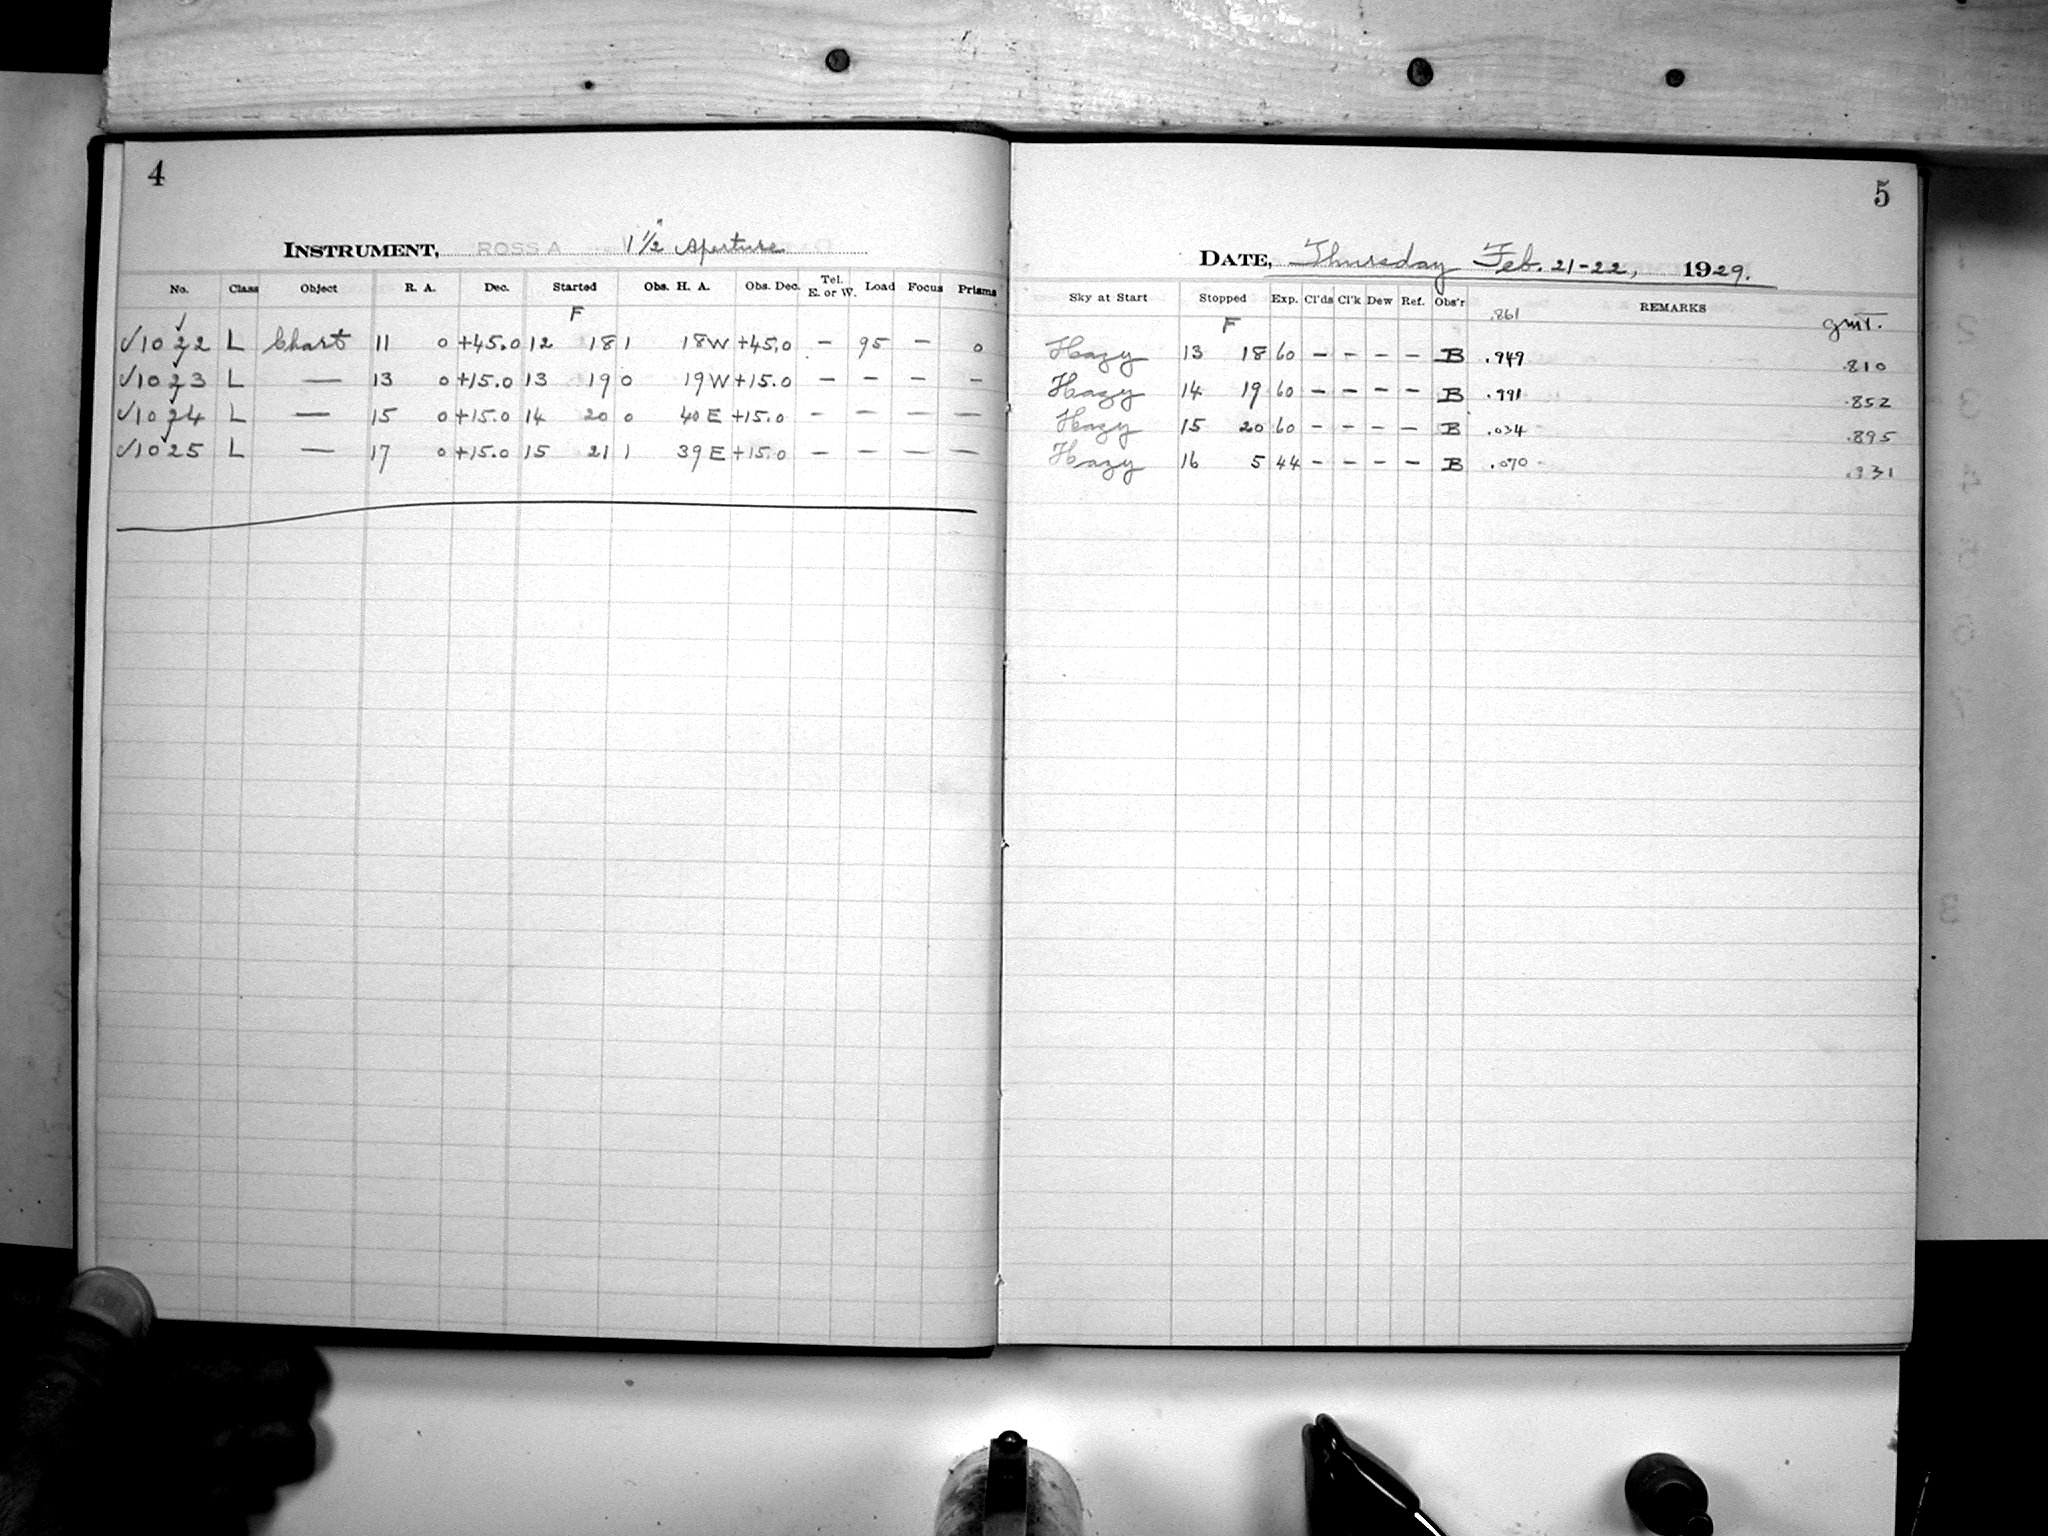 4
INSTRUMENT, ROSS A 1 1/2" Aperture
No. Class Object R. A. Dec. Started Obs. H. A. Obs. Dec. Tel. E. or W. Load Focus Prisms
F
✓1022 L Chart 11 0 +45.0 12 18 1 18W +45.0 – 95 – 0
✓1023 L — 13 0 +15.0 13 19 0 19W +15.0 – – – –
✓1024 L — 15 0 +15.0 14 20 0 40E +15.0 – – — —
✓1025 L — 17 0 +15.0 15 21 1 39E +15.0 – – — —
5
DATE, Thursday Feb. 21-22, 1929.
Sky at Start Stopped Exp. Cl'ds Cl'k Dew Ref. Obs'r REMARKS
F .861 GMT.
Hazy 13 18 60 – – – – B .949 .810
Hazy 14 19 60 – – – – B .991 .852
Hazy 15 20 60 – – – – B .034 .895
Hazy 16 5 44 – – – – B .070 .931